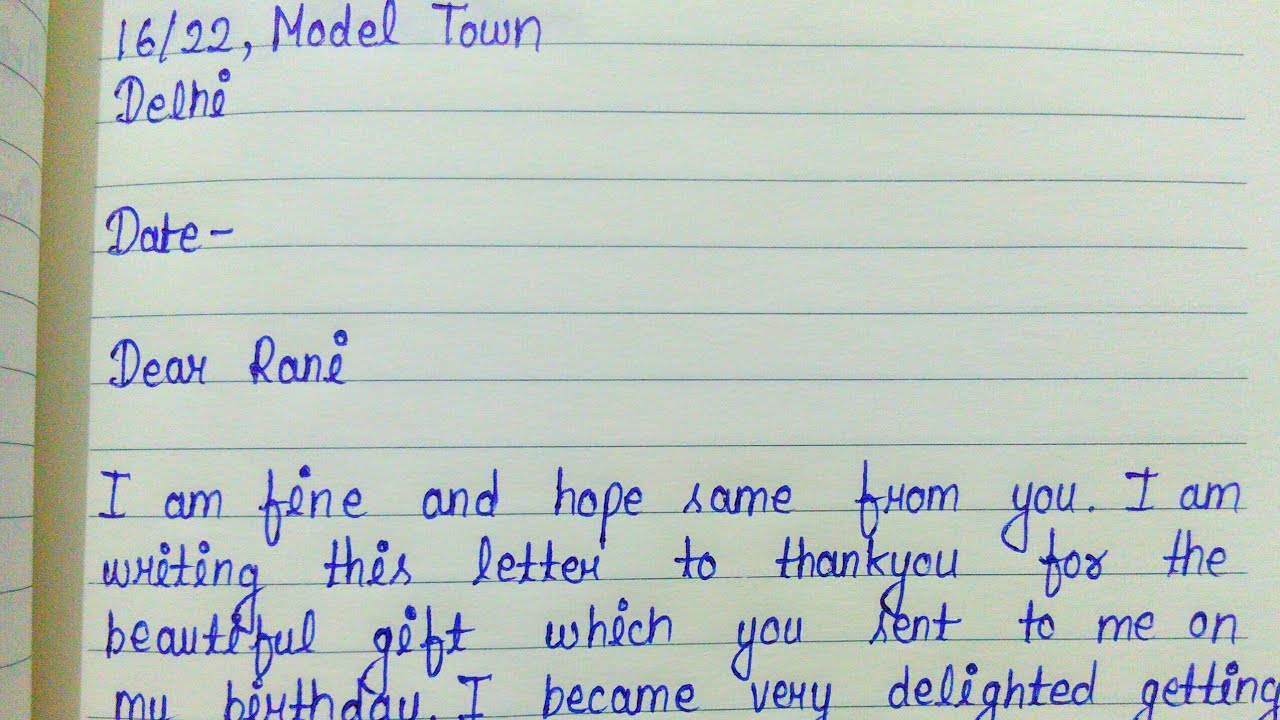 16/22, Model Town
Delhi
Date-
Dear Rani
I am fine and hope same from you. I am
writing this letter to thankyou for the
beautiful gift which you sent to me on
my birthday. I became very delighted getting